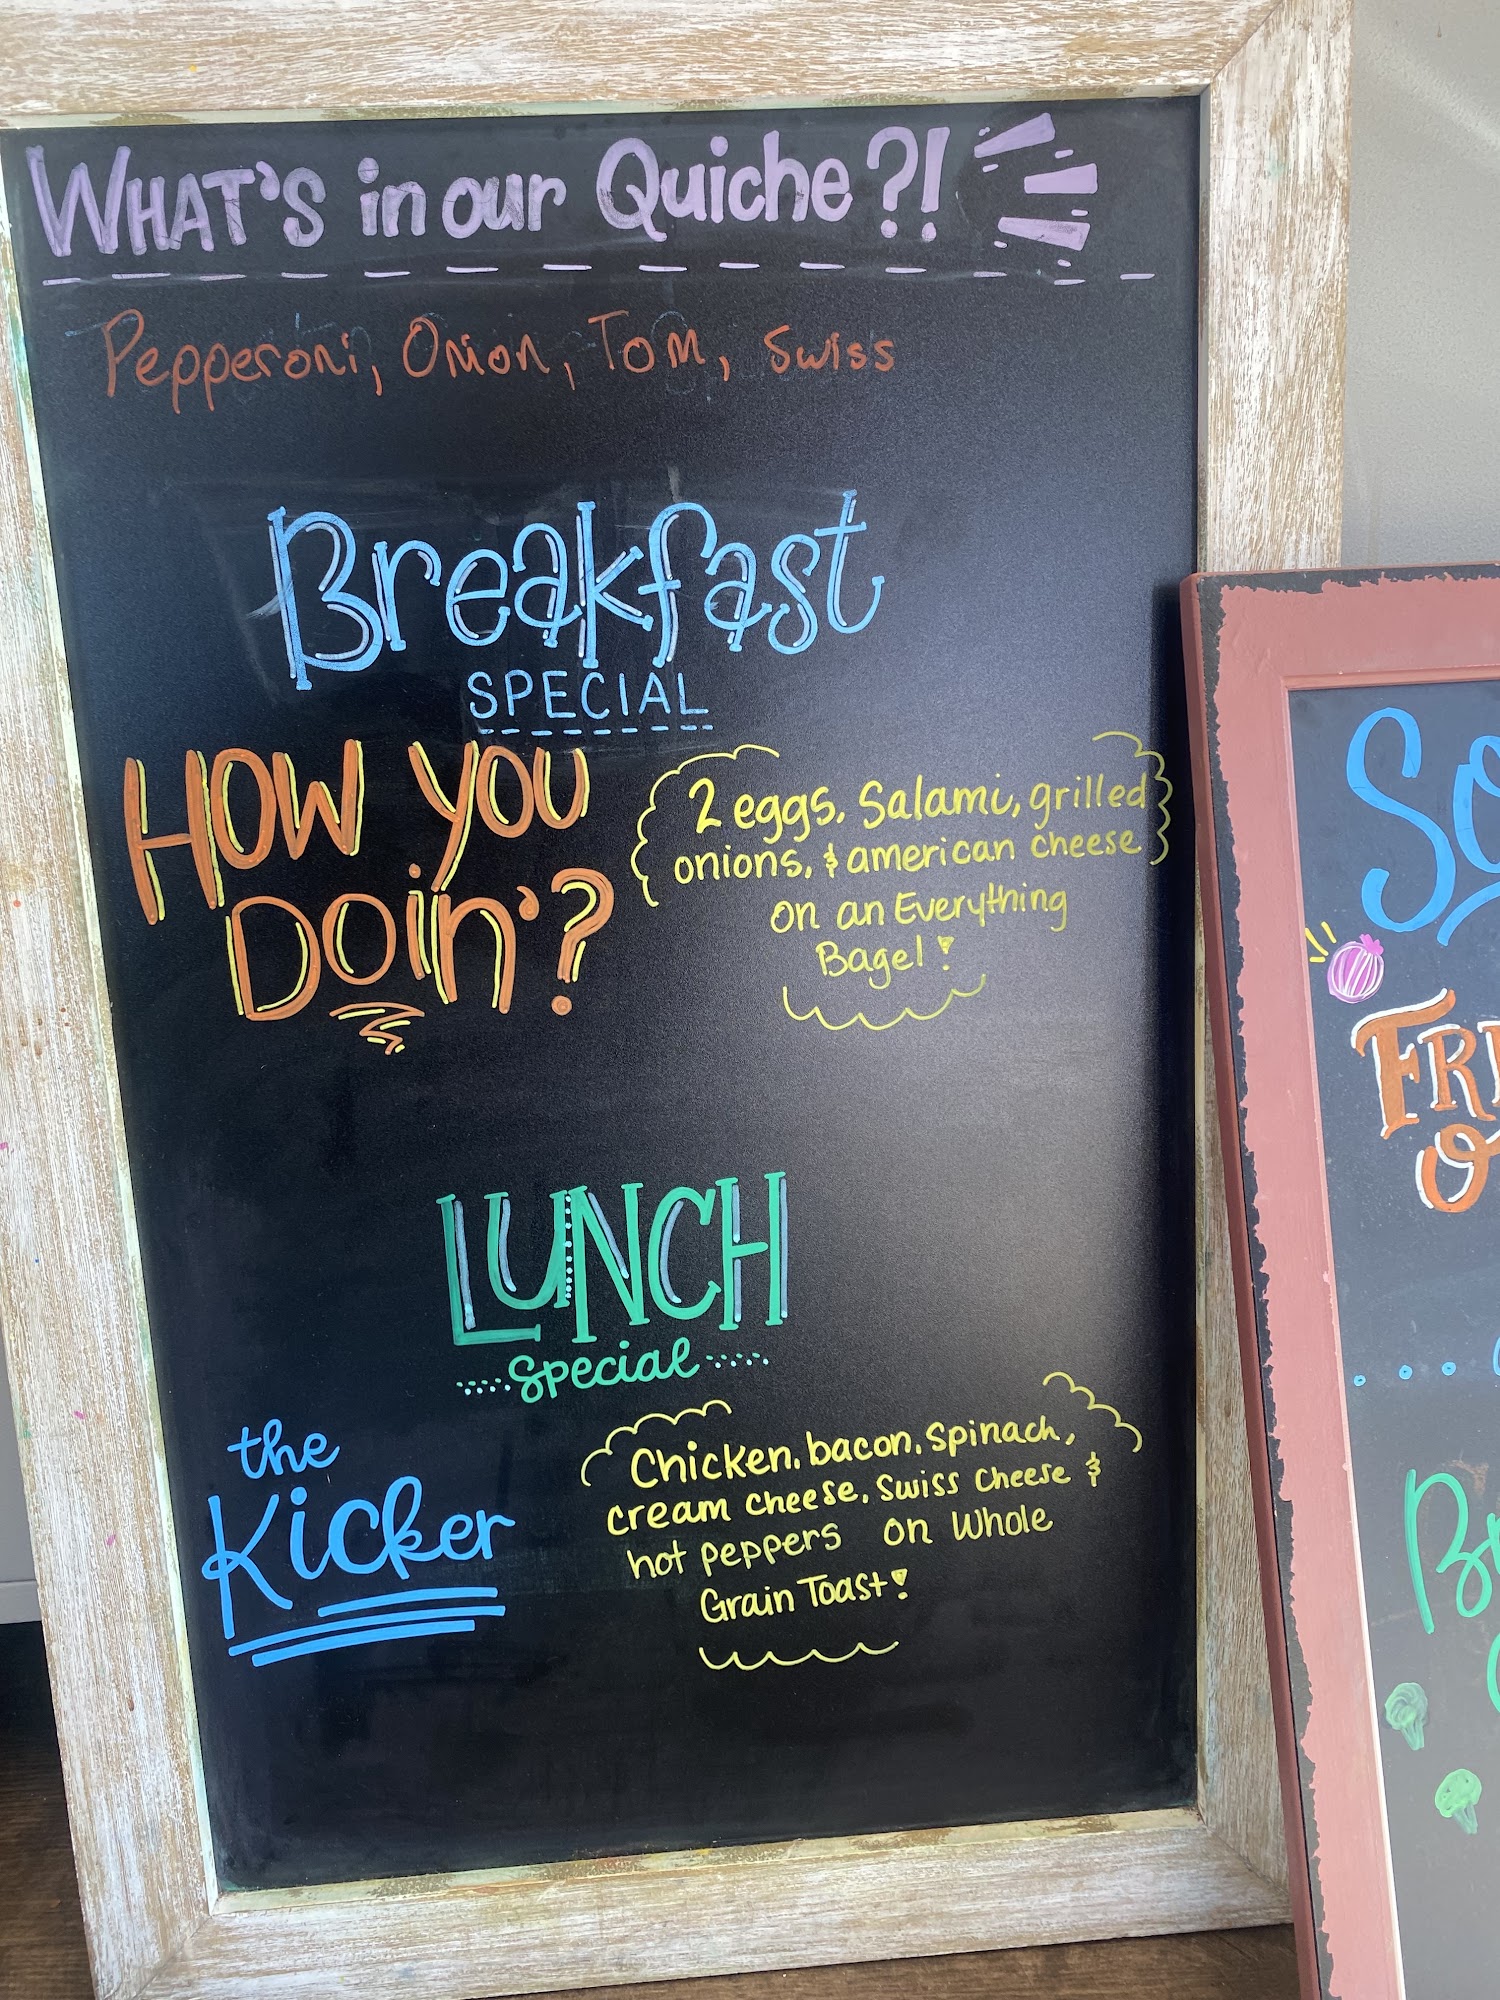 WHAT'S in our Quiche?!
Pepperoni, Onion, Tom, Swiss
Breakfast
SPECIAL
HOW YOU
DOIN'?
2 eggs, Salami, grilled
onions, & american cheese
on an Everything
Bagel!
LUNCH
Special
the
Kicker
Chicken, bacon, spinach,
cream cheese, swiss cheese &
hot peppers on Whole
Grain Toast!